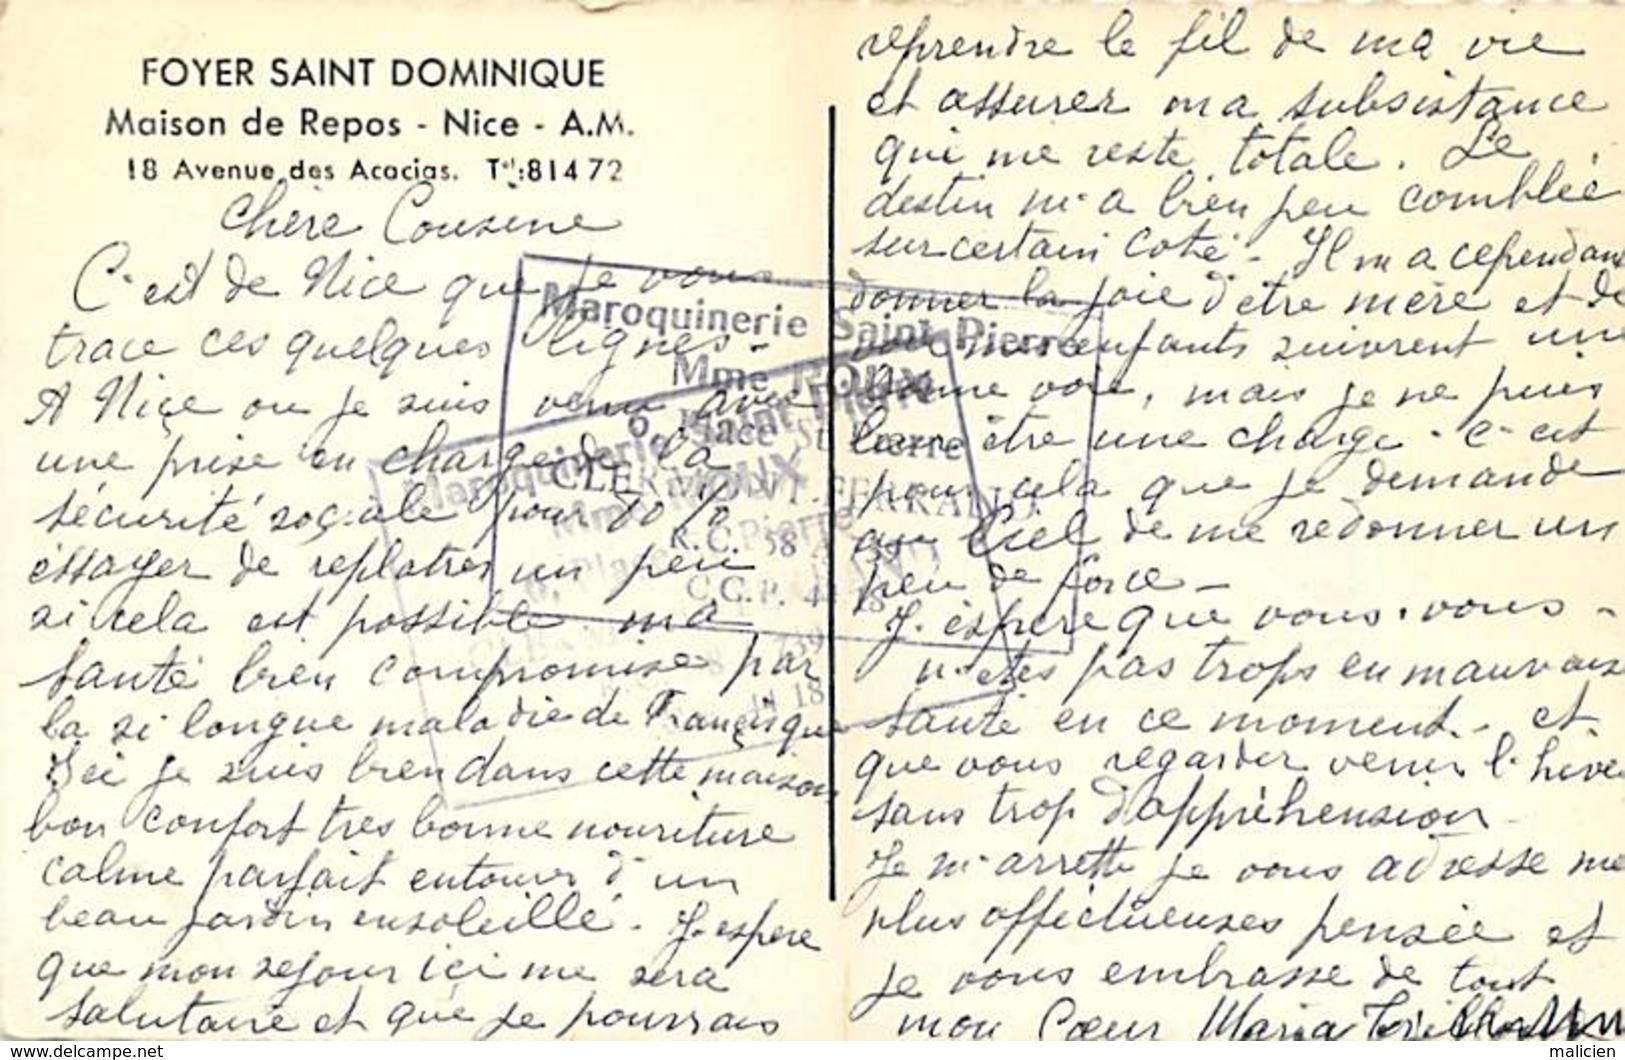 FOYER SAINT DOMINIQUE
Maison de Repos - Nice - A.M.
18 Avenue des Acacias. Tel:81472
Chère Cousine
C'est de Nice que je vous
trace ces quelques lignes -
A Niçe ou je suis venu avec
une prise en charge de la
sécurité soçiale pour 80 %
éssayer de replatrer un peu
si cela est possible ma
santé bien compromise par
la si longue maladie de Françisque
Ici je suis bien dans cette maison
bon confort tres bonne nouriture
calme parfait entourer d'un
beau jardin ensoleillé. J'espere
que mon sejour ici me sera
salutaire et que je pourrais
reprendre le fil de ma vie
et assurer ma subsistance
qui me reste totale. Le
destin m'a bien peu comblée
sur certain coté - Il m'a cependant
donner la joie d'être mère et de
mes enfants suivrent une
bonne voie, mais je ne puis
leur être une charge - c'est
pour cela que je demande
au Ciel de me redonner un
peu de force -
J'éspère que vous. vous -
n'etes pas trops en mauvaise
santé en ce moment. - et
que vous regarder venir l'hiver
sans trop d'appréhension
Je m'arrette je vous adresse me
plus affectueuses pensée et
je vous embrasse de tout
mon Cœur Maria
Maroquinerie Saint Pierre
Mme ROUX
6, Place St Pierre
CLERMONT-FERRAND
R.C. 58 A 739
C.C.P.
Maroquinerie Saint Pierre
Mme ROUX
6, Place St Pierre
https://www.delcampe.net
malicien